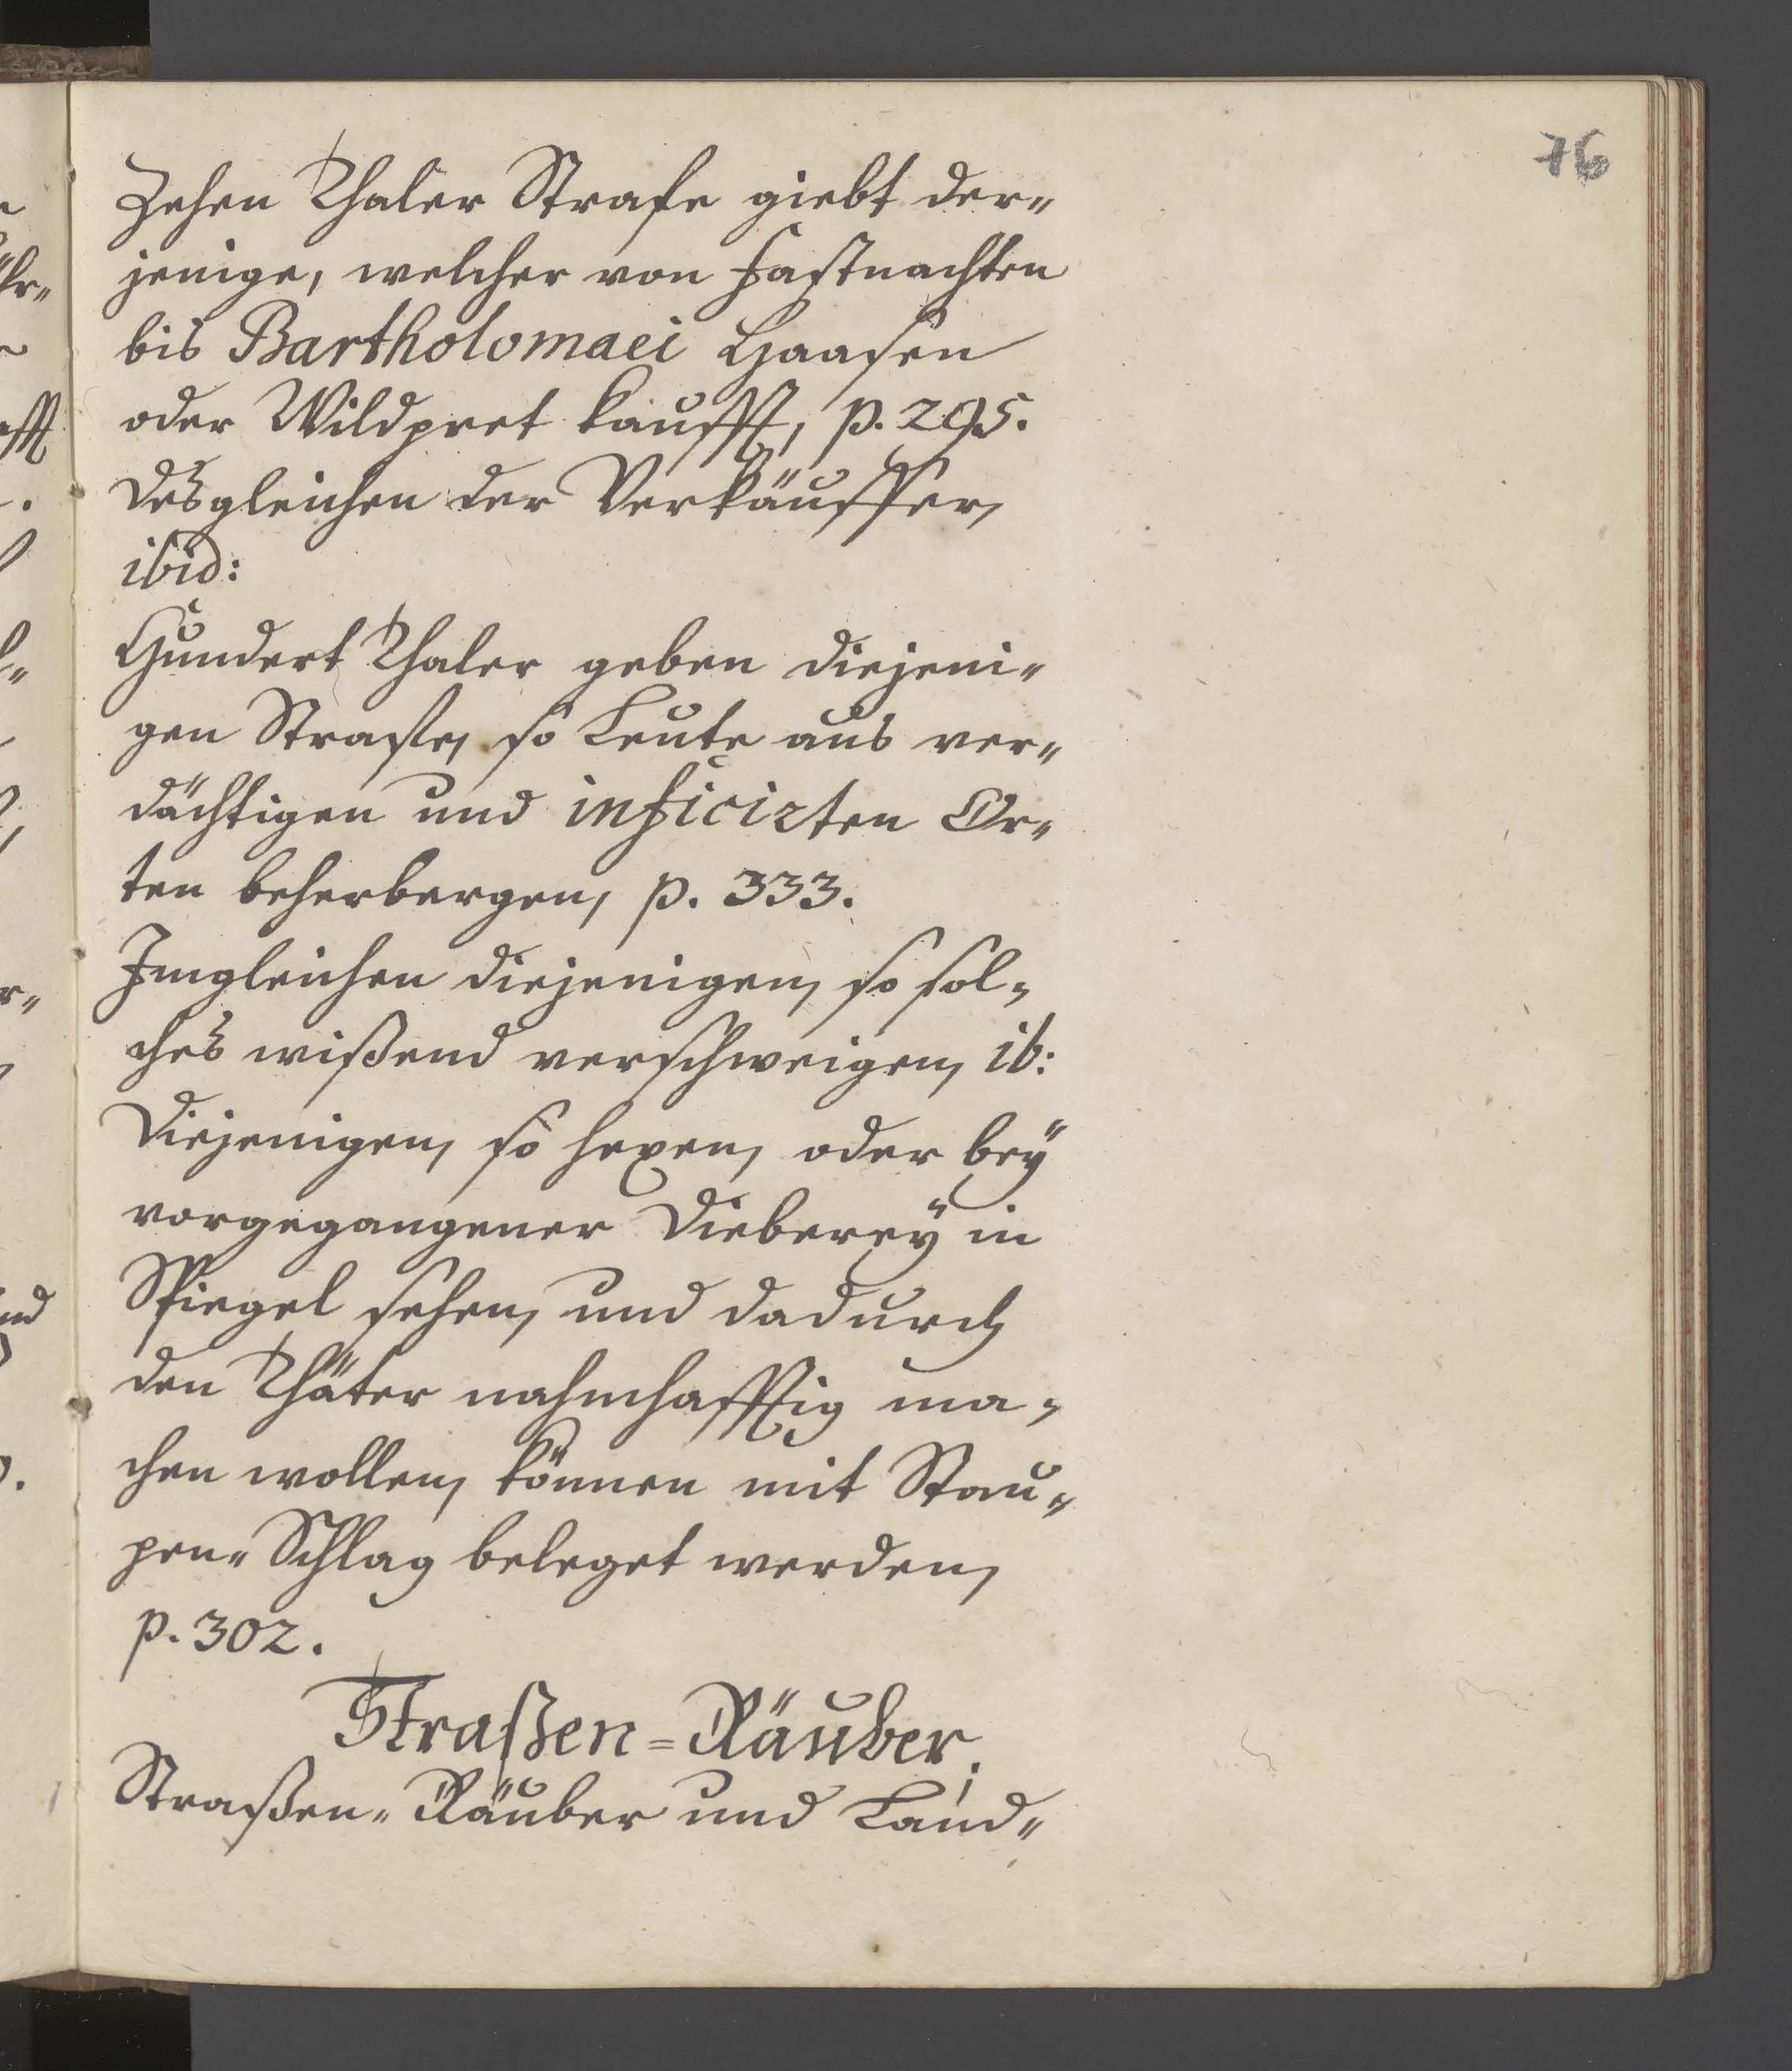 76
Zehen Thaler Strafe giebt der=
jenige, welcher von Fastnachten
bis Bartholomaei Haasen
oder Wildpret kaufft, p. 295.
desgleichen der Verkäuffer,
ibid:
Hundert Thaler geben diejeni=
gen Strafe, so Leute aus ver=
dächtigen und inficirten Or=
ten beherbergen, p. 333.
Jmgleichen diejenigen, so sol=
ches wißend verschweigen, ib:
Diejenigen, so hexen, oder beÿ
vorgegangener Diebereÿ in
Spiegel sehen, und dadurch
den Thäter nahmhafftig ma=
chen wollen, können mit Stau=
pen=Schlag beleget werden,
p. 302.
Straßen=Räuber.
Straßen=Räuber und Land=